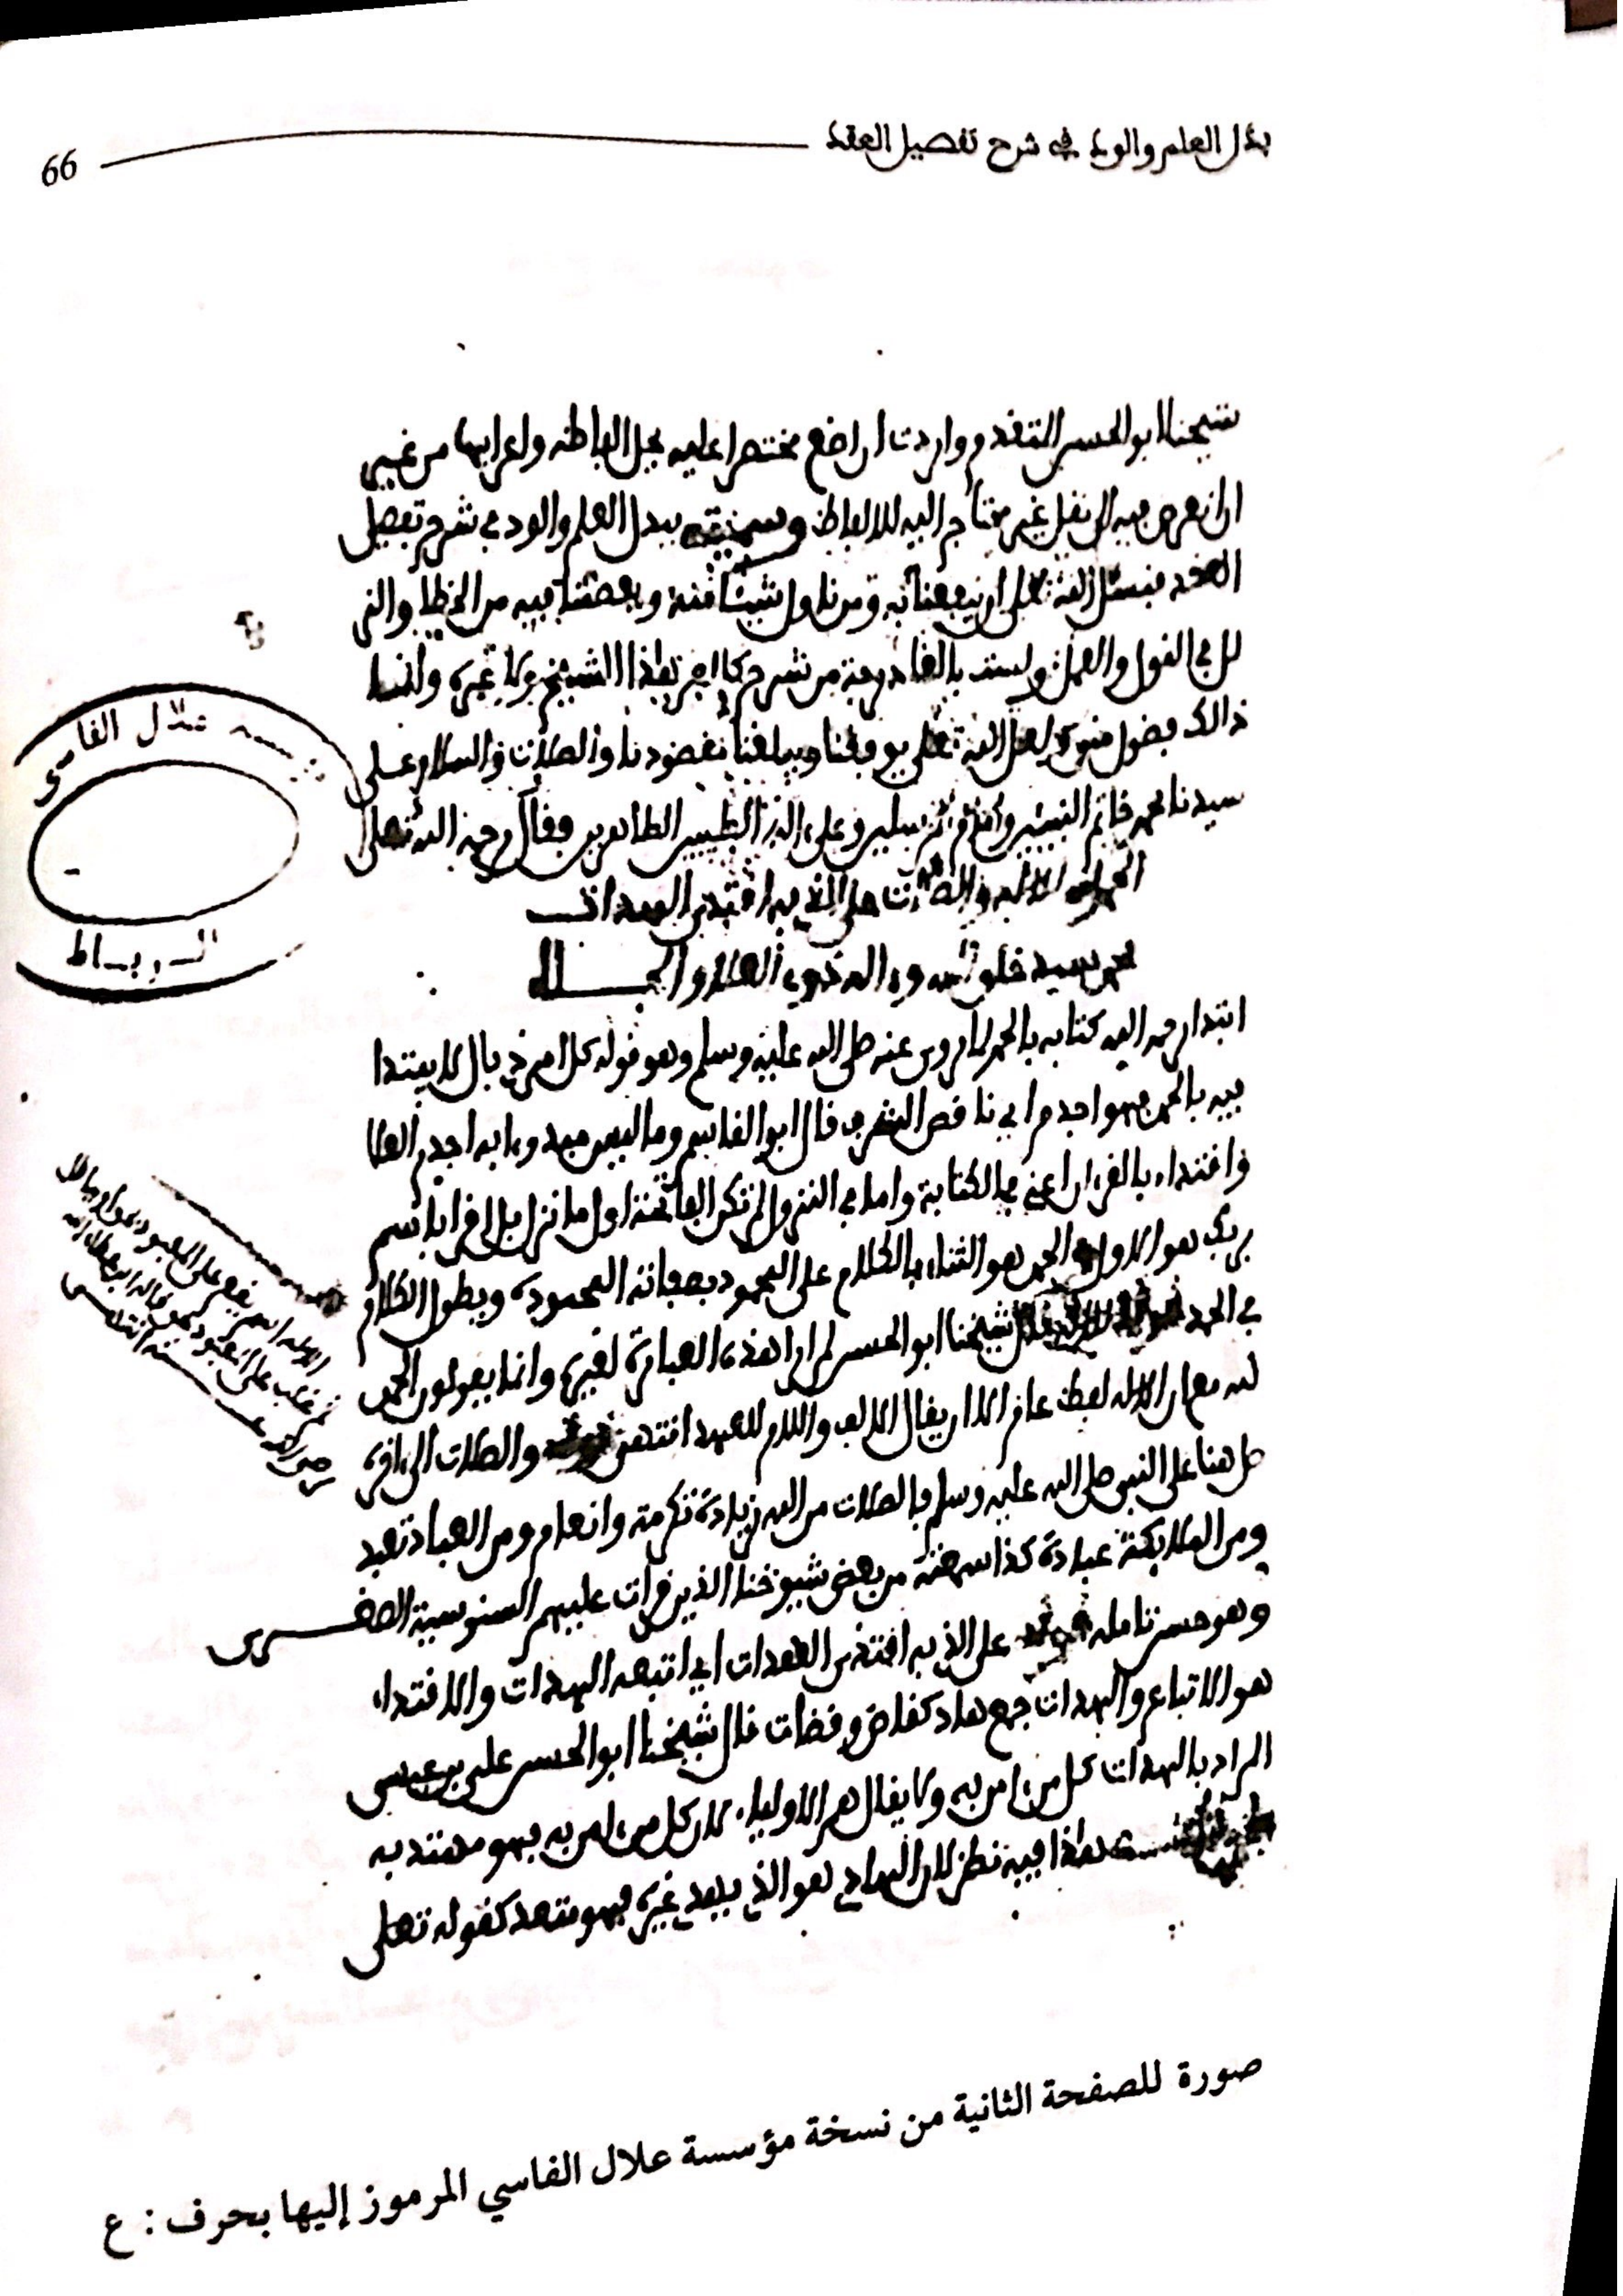 بذل العلم والود في شرح تفصيل العقد
66
شيخنا ابو الحسن المتقدم واردت ان اضع مختصرا عليه يحل الفاظه واعرابها من غير
ان اتعرض فيه لنقل غير محتاج اليه للالفاظ وسميته ببذل العلم والود في شرح تفصيل
العقد فنسئل الله تعلى ان ينفعنا به ومن ناول شيئا منه ويعصمنا فيه من الخطإ والز
لل في القول والعمل ولست بالقادر من شرح كلام هذا الشيخ ولا غيره وانما
ذالك فضول مني لعل الله تعلى يوفقنا ويبلغنا مقصودنا والصلات والسلام على
سيدنا محمد خاتم النبيئين وامام المرسلين وعلى اله الطيبين الطاهرين فقال رحمه الله تعلى
الحمد لله الاله والصلات على الذي به اقتدى الهدات
محمد سيد خلق الله واله ذوي العلا والجاه
ابتدا رحمه الله كتابه بالحمد لما روي عنه صلى الله عليه وسلم وهو قوله كل امر ذي بال لا يبتدا
فيه بالحمد فهو اجذم اي ناقص الشرف قال ابو القاسم وما ليس مبدوءا به اجذم العلا
واقتداء بالقران اعني في الكتابة واما في النزول لم تكن الفاتحة اول ما نزل بل اقرا باسم
ربك هو الاول الحمد هو الثناء بالكلام على المحمود بصفاته المحمودة ويطول الكلام
في الحمد قال شيخنا ابو الحسن لم ار هذه العبارة لغيره وانما يقولون الحمد
لله مع ان الاله لفظ عام الا ان يقال الالف واللام للعهد انتهى والصلات الى اخره
صل هنا على النبي صلى الله عليه وسلم فالصلات من الله زيادة تكرمة وانعام ومن العباد تعبد
ومن الملائكة عبادة كذا سمعته من بعض شيوخنا الذين قرات عليهم السنوسية الصغرى
وهو حسن تامله على الذي به اقتدى الهدات اي اتبعه الهدات والاقتداء
هو الاتباع والهدات جمع هاد كقاض وقضات قال شيخنا ابو الحسن علي بن عيسى
المراد بالهدات كل من امن به ولا يقال هم الاولياء لان كل من امن به فهو مهتد به
هذا فيه نظر لان الهادي هو الذي يهدي غيره فهو متعد كقوله تعلى
مؤسسة علال الفاسي
الرباط
صورة للصفحة الثانية من نسخة مؤسسة علال الفاسي المرموز إليها بحرف : ع